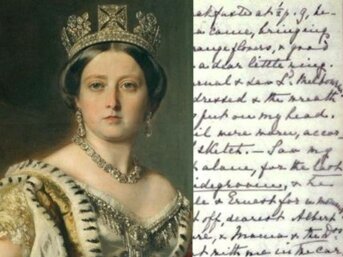 kfasted at ½ p. 9, he
came, bringing
range flowers, & goo
a dear little ring.
rnal & saw Ld. Melbour
dressed & the wreath
put on my head.
il were mann, accor
sketch. — Saw my
t alone, for the last
idegroom, & he
de & Ernest for a mom
off, dearest Albert
re, & Mama & the Ds.
t with me in the car